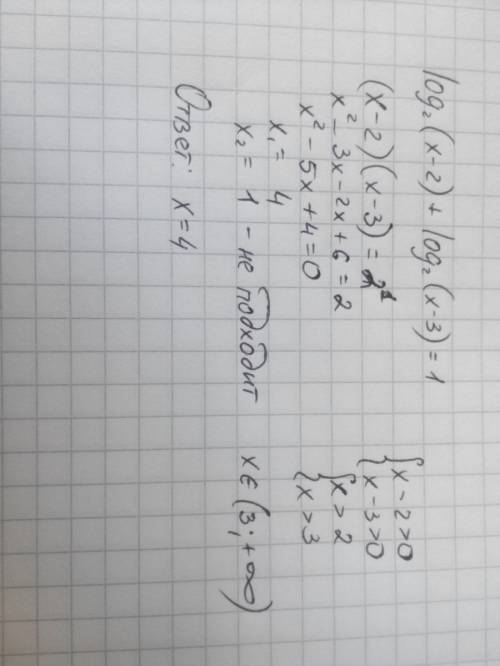 log₂(x-2) + log₂(x-3) = 1
(x-2)(x-3) = 2¹
x² - 3x - 2x + 6 = 2
x² - 5x + 4 = 0
x₁ = 4
x₂ = 1 - не подходит
Ответ: x = 4
{ x - 2 > 0
{ x - 3 > 0
{ x > 2
{ x > 3
x ∈ (3; +∞)